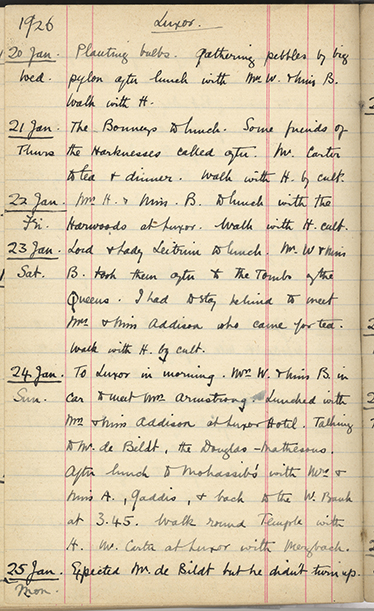 1926 Luxor.
20 Jan. Planting bulbs. Gathering pebbles by big
Wed. pylon after lunch with Mrs W. & Miss B.
Walk with H.
21 Jan. The Bonneys to lunch. Some friends of
Thurs the Harknesses called after. Mr. Carter
to tea & dinner. Walk with H. by cult.
22 Jan. Mrs H. & Miss. B. to lunch with the
Fri. Harwoods at Luxor. Walk with H. cult.
23 Jan. Lord & Lady Leitrim to lunch. Mr. W & Miss
Sat. B. took them after to the Tombs of the
Queens. I had to stay behind to meet
Mrs & Miss Addison who came for tea.
Walk with H. by cult.
24 Jan. To Luxor in morning. Mrs W. & Miss B. in
Sun. car to meet Mrs Armstrong. Lunched with
Mrs & Miss Addison at Luxor Hotel. Talking
to Mr. de Bildt, the Douglas-Mathesons.
After lunch to Mohassib's with Mrs &
Miss A., Gaddis, & back to the W. Bank
at 3.45. Walk round Temple with
H. Mr. Carter at Luxor with Merzbach.
25 Jan. Expected Mr. de Bildt but he didn't turn up.
Mon.